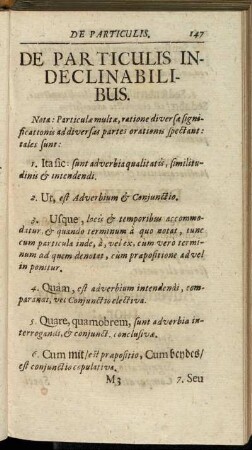 DE PARTICULIS. 147
DE PARTICULIS IN-
DECLINABILI-
BUS.
Nota: Particula multæ, ratione diversæ signi-
ficationis ad diversas partes orationis spectant:
tales sunt:
1. Ita sic: sunt adverbia qualitatis, similitu-
dinis & intendendi.
2. Ut, est Adverbium & Conjunctio.
3. Usque, locis & temporibus accommo-
datur. & quando terminum à quo notat, tunc
cum particula inde, à, vel ex. cum vero termi-
num ad quem denotat, cum præpositione ad vel
in ponitur.
4. Quàm, est adverbium intendendi, com-
parandi, vel Conjunctio electiva.
5. Quare, quamobrem, sunt adverbia in-
terrogandi, & conjunct. conclusivæ.
6. Cum mit/ est præpositio, Cum beydes/
est conjunctio copulativa.
M3 7. Seu